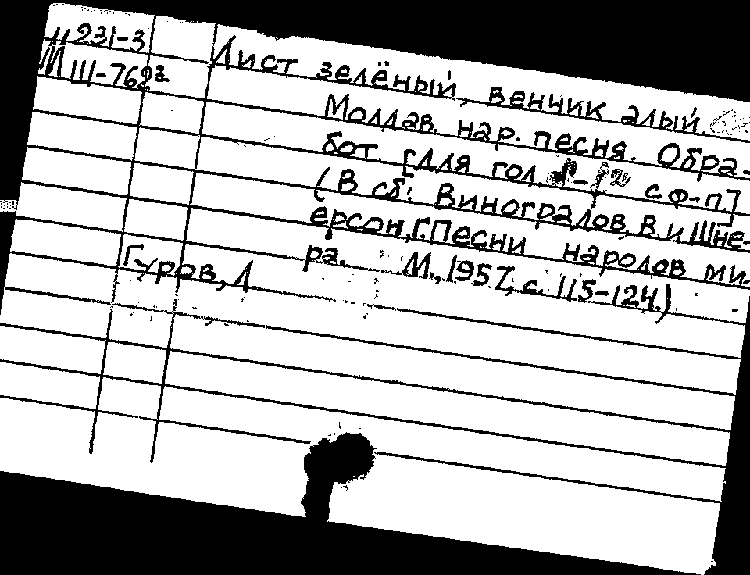 М 231-3
М III-762²
Лист зелёный, венчик алый.
Молдав. нар. песня. Обра-
бот [для гол. с ф-п]
(В сб: Виноградов, В. и Шне-
ерсон, Г. Песни народов ми-
ра. М., 1957, с. 115-124.)
Гуров, Л